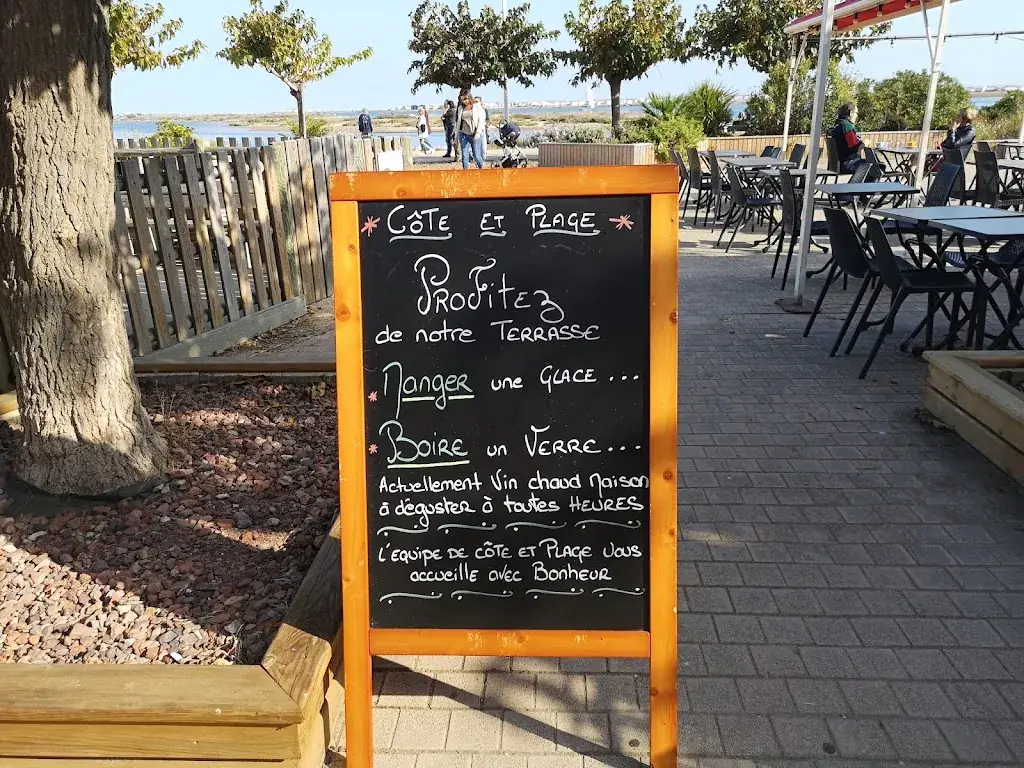 CÔTE ET PLAGE
PROFITEZ
de notre TERRASSE
MANGER une GLACE...
BOIRE un VERRE...
Actuellement Vin chaud Maison
à déguster à toutes HEURES
L'EQUIPE DE CÔTE ET PLAGE VOUS
accueille avec BonHEUR